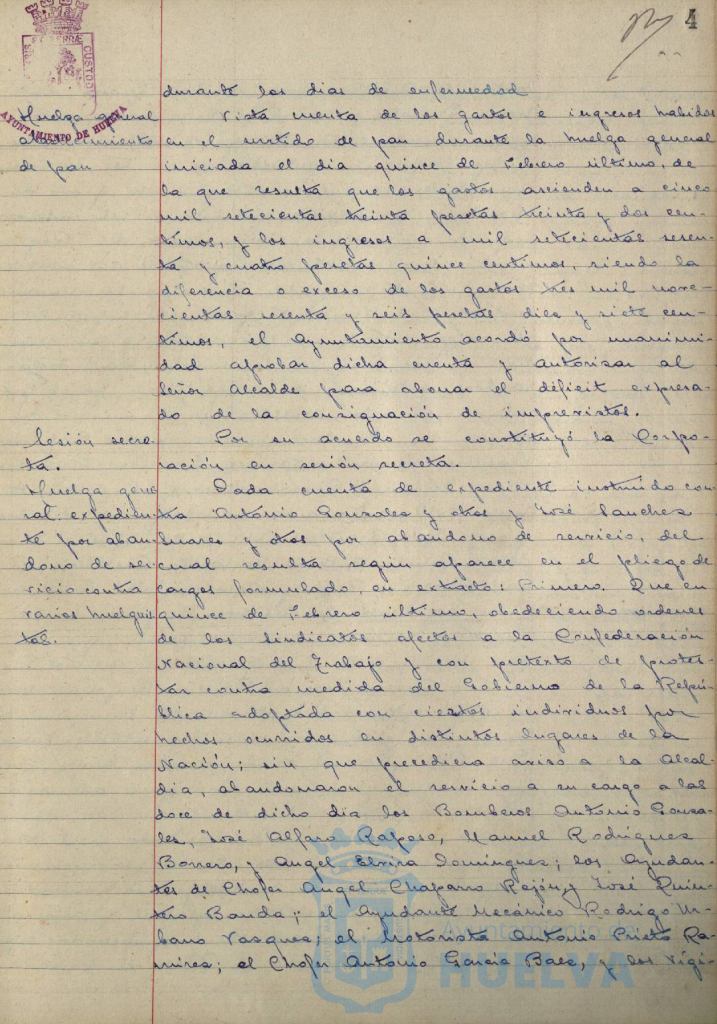 4
PORTUS MARIS ET TERRAE CUSTODIA
AYUNTAMIENTO DE HUELVA
durante los dias de enfermedad
Huelga general
abastecimiento
de pan
Vista cuenta de los gastos e ingresos habidos
en el surtido de pan durante la huelga general
iniciada el dia quince de Febrero último, de
la que resulta que los gastos ascienden a cinco
mil setecientas treinta pesetas treinta y dos cen-
timos, y los ingresos a mil setecientas sesen-
ta y cuatro pesetas quince centimos, siendo la
diferencia o exceso de los gastos tres mil nove-
cientas sesenta y seis pesetas diez y siete cen-
timos, el Ayuntamiento acordó por unanimi-
dad aprobar dicha cuenta y autorizar al
Señor Alcalde para abonar el déficit expresa-
do de la consignación de imprevistos.
Sesión secre-
ta.
Por su acuerdo se constituyó la Corpo-
ración en sesión secreta.
Huelga gene-
ral: expedien-
te por aban-
dono de ser-
vicio contra
varios huelguis-
tas.
Dada cuenta de expediente instruido con-
tra Antonio Gonzalez y otros y José Sanchez
Suarez y otros por abandono de servicio, del
cual resulta según aparece en el pliego de
cargos formulado, en extracto: Primero. Que en
quince de Febrero último, obedeciendo ordenes
de los Sindicatos afectos a la Confederación
Nacional del Trabajo y con pretexto de protes-
tar contra medida del Gobierno de la Repú-
blica adoptada con ciertos individuos por
hechos ocurridos en distintos lugares de la
Nación; sin que precediera aviso a la Alcal-
dia, abandonaron el servicio a su cargo a las
doce de dicho dia los Bomberos Antonio Gonza-
lez, José Alfaro Raposo, Manuel Rodríguez
Borrero, y Angel Elvira Dominguez; los Ayudan-
tes de Chofer Angel Chaparro Rejón, y José Quin-
tero Banda; el Ayudante Mecánico Rodrigo Ur-
bano Vasquez; el Motorista Antonio Prieto Ra-
mirez; el Chofer Antonio Garcia Baez, y los Vigi-
Ayuntamiento de
HUELVA